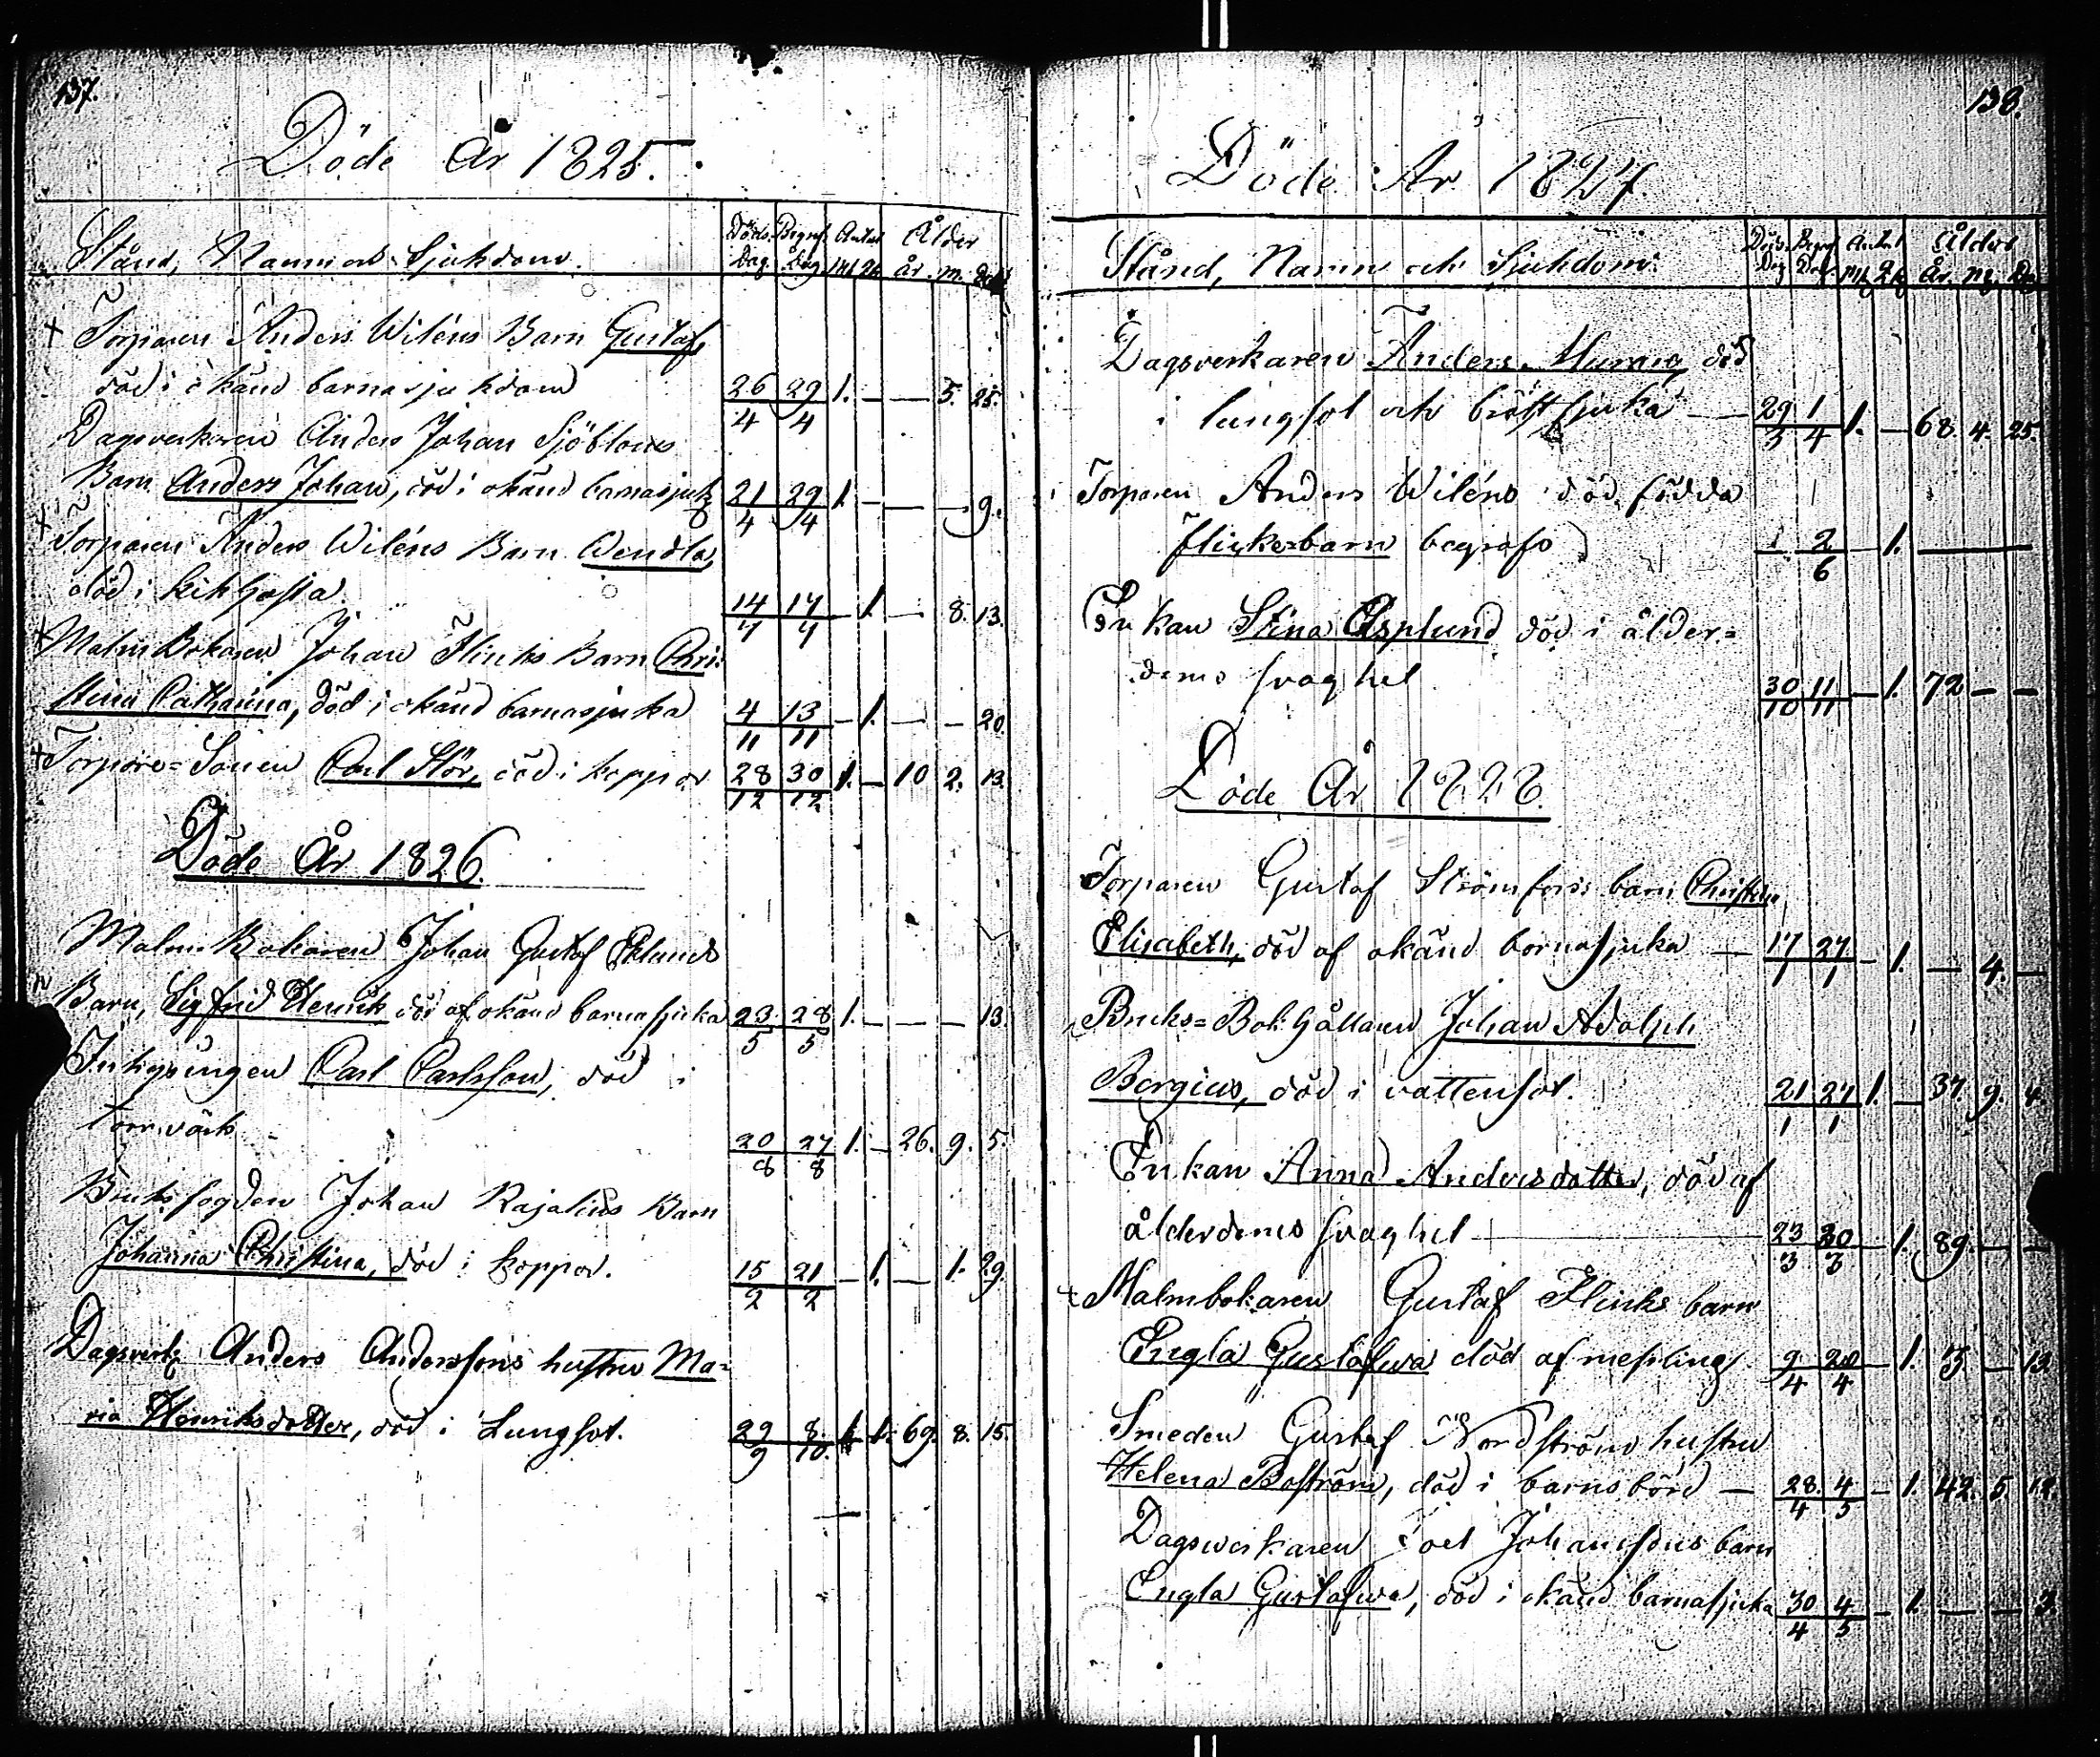 137.
Döde År 1825.
Stånd, Namn och Sjukdom. Döds Dag Begrafn. Dag Antal Mk Qk Ålder År. M. Dag
Torparen Anders Wiléns Barn Gustaf,
död i okänd barnasjukdom 26/4 29/4 1. — — 5. 25.
Dagsverkaren Anders Johan Sjöbloms
Barn Anders Johan, död i okänd barnasjuk 21/4 29/4 1. — — — 9.
Torparen Anders Wiléns Barn Wendla,
död i kikhosta. 14/7 17/7 — 1. — 8. 13.
Malmbokaren Johan Flinks Barn Chri=
stina Catharina, död i okänd barnasjuka 4/11 13/11 — 1. — — 20.
Torpare=Sonen Carl Stör, död i koppor 28/12 30/12 1. — 10 2. 13.
Döde År 1826.
Malm Bokaren Johan Gustaf Eklunds
Barn, Sigfrid Henrik död af okänd barnasjuka 23/5 28/5 1. — — — 13.
Inhysingen Carl Carlsson, död i
torrvärk 20/8 27/8 1. — 26. 9. 5.
Bruksfogden Johan Rajalins Barn
Johanna Christina, död i koppor. 15/2 21/2 — 1. — 1. 29.
Dagsverk Anders Anderssons hustru Ma=
ria Henriksdotter, död i Lungsot. 29/9 8/10. 1. 69. 8. 15.
138.
Döde År 1827.
Stånd, Namn och Sjukdom. Döds Dag Begraf Dag Antal Mk Qk Ålder År. M. Dag
Dagsverkaren Anders Murmig död
i lungsot och bröstsjuka — 29/3 1/4 1. — 68. 4. 25.
Torparen Anders Wiléns död födda
flickebarn begrafs 2/6 — 1. —
Enkan Stina Asplund död i ålder=
doms svaghet 30/10 11/11 — 1. 72 — —
Döde År 1828.
Torparen Gustaf Strömfors barn Christina
Elisabeth, död af okänd barnasjuka — 17/1 27/1 — 1. — 4. —
Bruks=Bokhållaren Johan Adolph
Bergius, död i vattensot. 21/1 27/1 1. — 37. 9. 4.
Enkan Anna Andersdotter, död af
ålderdoms svaghet — 23/3 30/3 — 1. 89. — —
Malmbokaren Gustaf Flinks barn
Engla Gustafwa död af messling 9/4 20/4 — 1. 3. — 13
Smeden Gustaf Nordströms hustru
Helena Boström, död i barnsbörd — 28./4 4/5 — 1. 42. 5 12.
Dagsverkaren Joel Johanssons barn
Engla Gustafwa, död i okänd barnasjuka 30/4 4/5 — 1. — — 3.